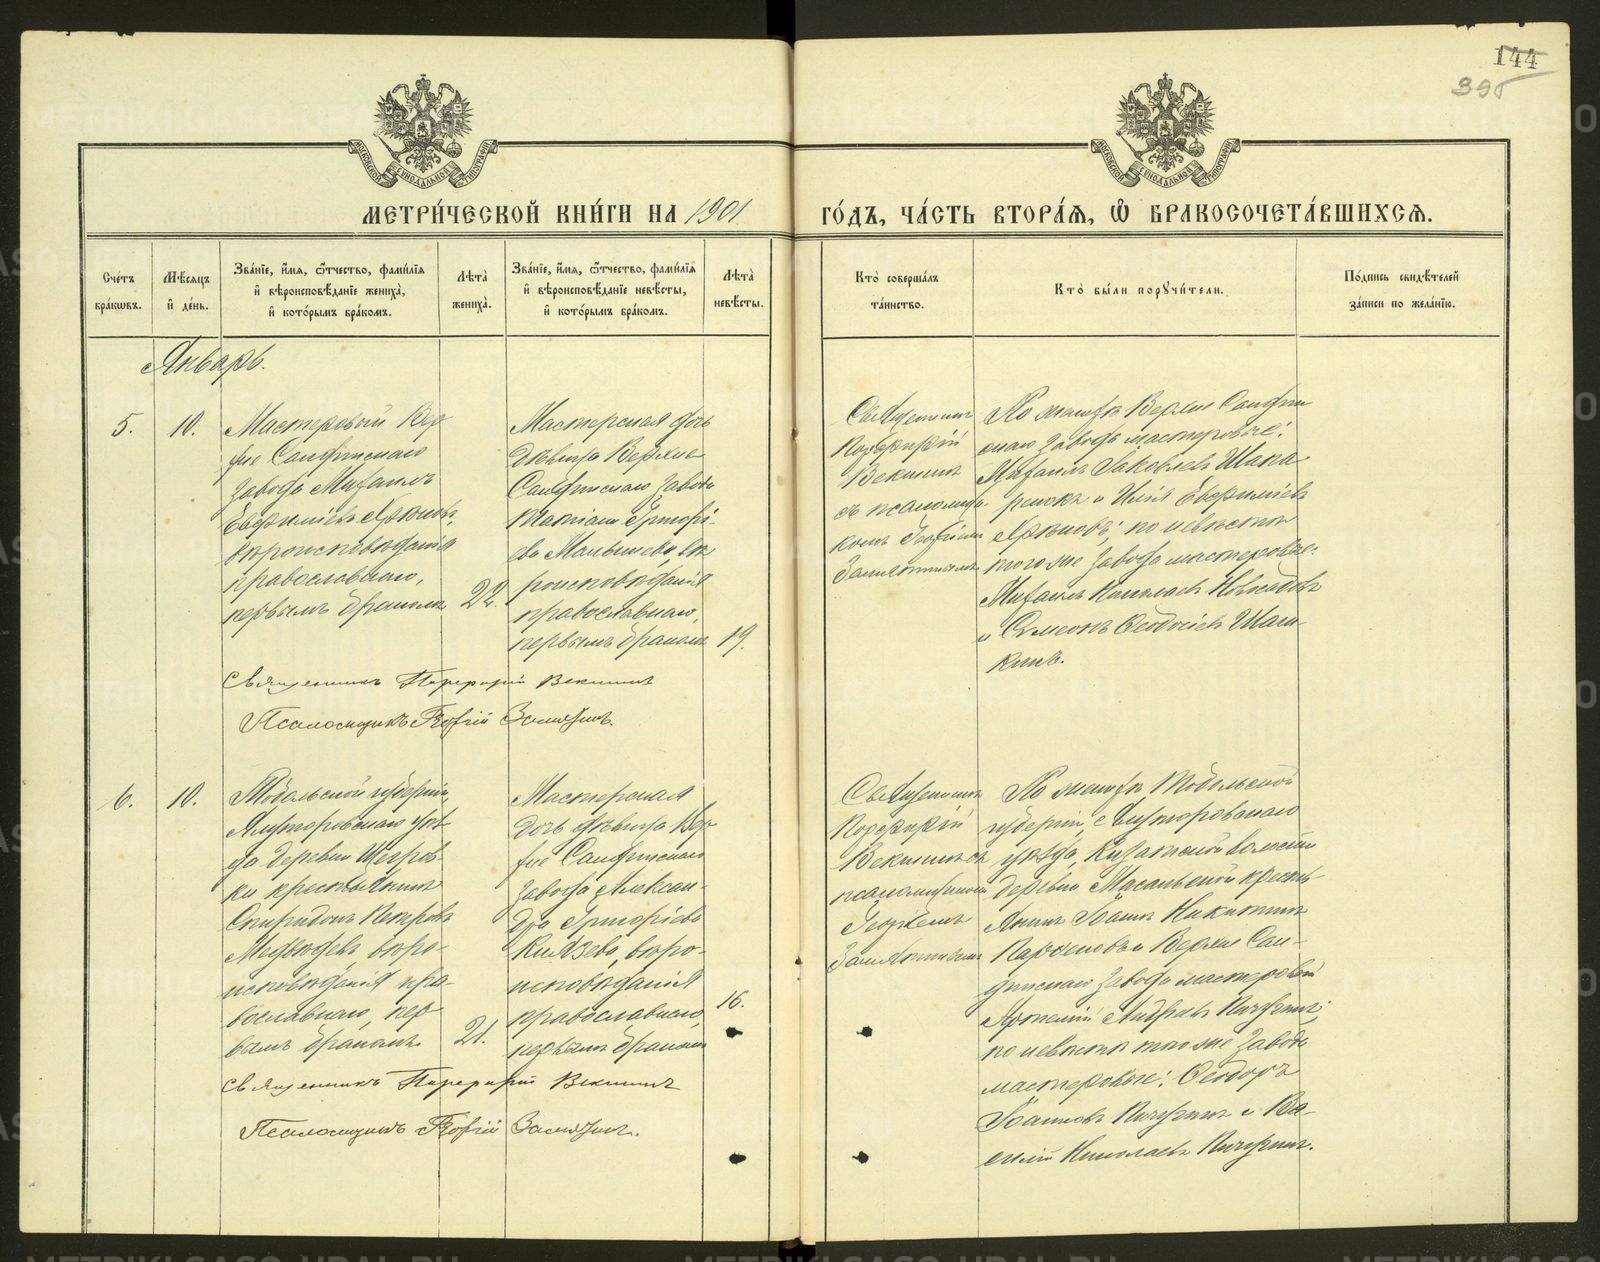 144
395
МЕТРИ́ЧЕСКОЙ КНИ́ГИ НА 1901
ГО́ДЪ, ЧА́СТЬ ВТОРА́Ѧ, Ѽ БРАКОСОЧЕТА́ВШИХСѦ.
Сче́тъ бра́кѡвъ.
Мѣ́сѧцъ и҆ де́нь.
Зва́нїе, и҆́мѧ, ѻ҆́тчество, фамн́лїѧ и҆ вѣроисповѣ́данїе жениха̀, и҆ кото́рымъ бра́комъ.
Лѣ́та жениха̀.
Зва́нїе, и҆́мѧ, ѻ҆́тчество, фами́лїѧ и҆ вѣроисповѣ́данїе невѣ́сты, и҆ кото́рымъ бра́комъ.
Лѣ́та невѣ́сты.
Кто̀ соверша́лъ та́инство.
Кто̀ бы́ли порꙋчи́тели.
По́дпись свидѣ́телей за́писи по жела́нїю.
Январь.
5.
10.
Мастеровый Вер
хне Салдинскаго
завода Михаилъ
Евфиміевъ
вѣроисповѣданія
православнаго,
первымъ бракомъ
22.
Мастерская дочь
дѣвица Верхне
Салдинскаго завода
Григорі-
ева Малышева, вѣ
роисповѣданія
православнаго,
первымъ бракомъ
19.
Священникъ
Порфирій
Векшинъ
съ псаломщи-
комъ Георгіемъ
Замятинымъ
По женихѣ Верхне Салдин
скаго завода мастеровые:
Михаилъ Іаковлевъ
и Илія Евфиміевъ
по невѣстѣ
того же завода мастеровые:
Михаилъ Николаевъ
и Сѵмеонъ Ѳеодосіевъ
Священникъ Порфирій Векшинъ
Псаломщикъ Георгій Замятинъ.
6.
10.
Тобольской губерніи,
Ялуторовскаго уѣз
да деревни
крестьянинъ
Спиридонъ Петровъ
Медвѣдевъ, вѣро-
исповѣданія пра-
вославнаго, пер
вымъ бракомъ.
21.
Мастерская
дочь дѣвица Вер
хне Салдинскаго
завода Алексан-
дра Григоріева
Князева, вѣро-
исповѣданія
православнаго,
первымъ бракомъ
16.
Священникъ
Порфирій
Векшинъ съ
псаломщикомъ
Георгіемъ
Замятинымъ
По женихѣ Тобольской
губерніи, Ялуторовскаго
уѣзда, Кизакской волости
деревни кресть-
янинъ Іоаннъ Никитинъ
и Верхне Сал-
динскаго завода мастеровой
Андреевъ
по невѣстѣ того же завода
мастеровые: Ѳеодоръ
Іоанновъ и Ва-
силій Николаевъ
Священникъ Порфирій Векшинъ
Псаломщикъ Георгій Замятинъ.